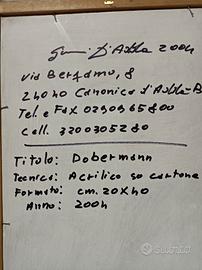 D'Adda 2004
via Bergamo, 8
24040 Canonica d'Adda-B
Tel. e Fax 0290965800
Cell. 3200305280
Titolo: Dobermann
Tecnica: Acrilico su cartone
Formato: cm. 20x40
Anno: 2004
Subito